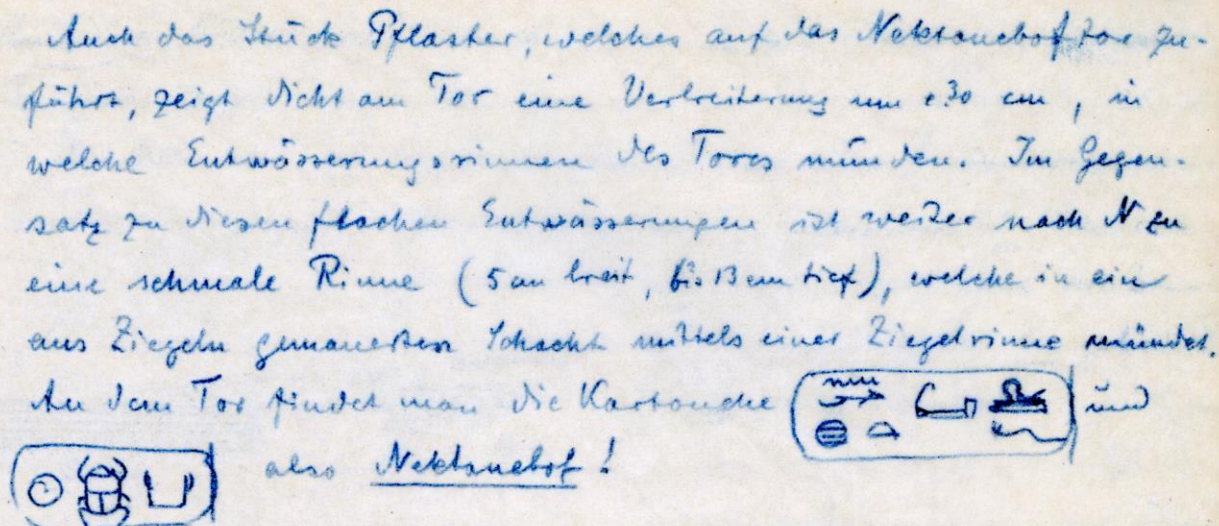 Auch das Stück Pflaster, welches auf das Nektanebostor zu-
führt, zeigt dicht am Tor eine Verbreiterung um 130 cm, in
welche Entwässerungsrinnen des Tores münden. Im Gegen-
satz zu diesen flachen Entwässerungen ist weiter nach N zu
eine schmale Rinne (5 cm breit, bis 13 cm tief), welche in ein
aus Ziegeln gemauerten Schacht mittels einer Ziegelrinne mündet.
An dem Tor findet man die Kartouche und
also Nektanebos!